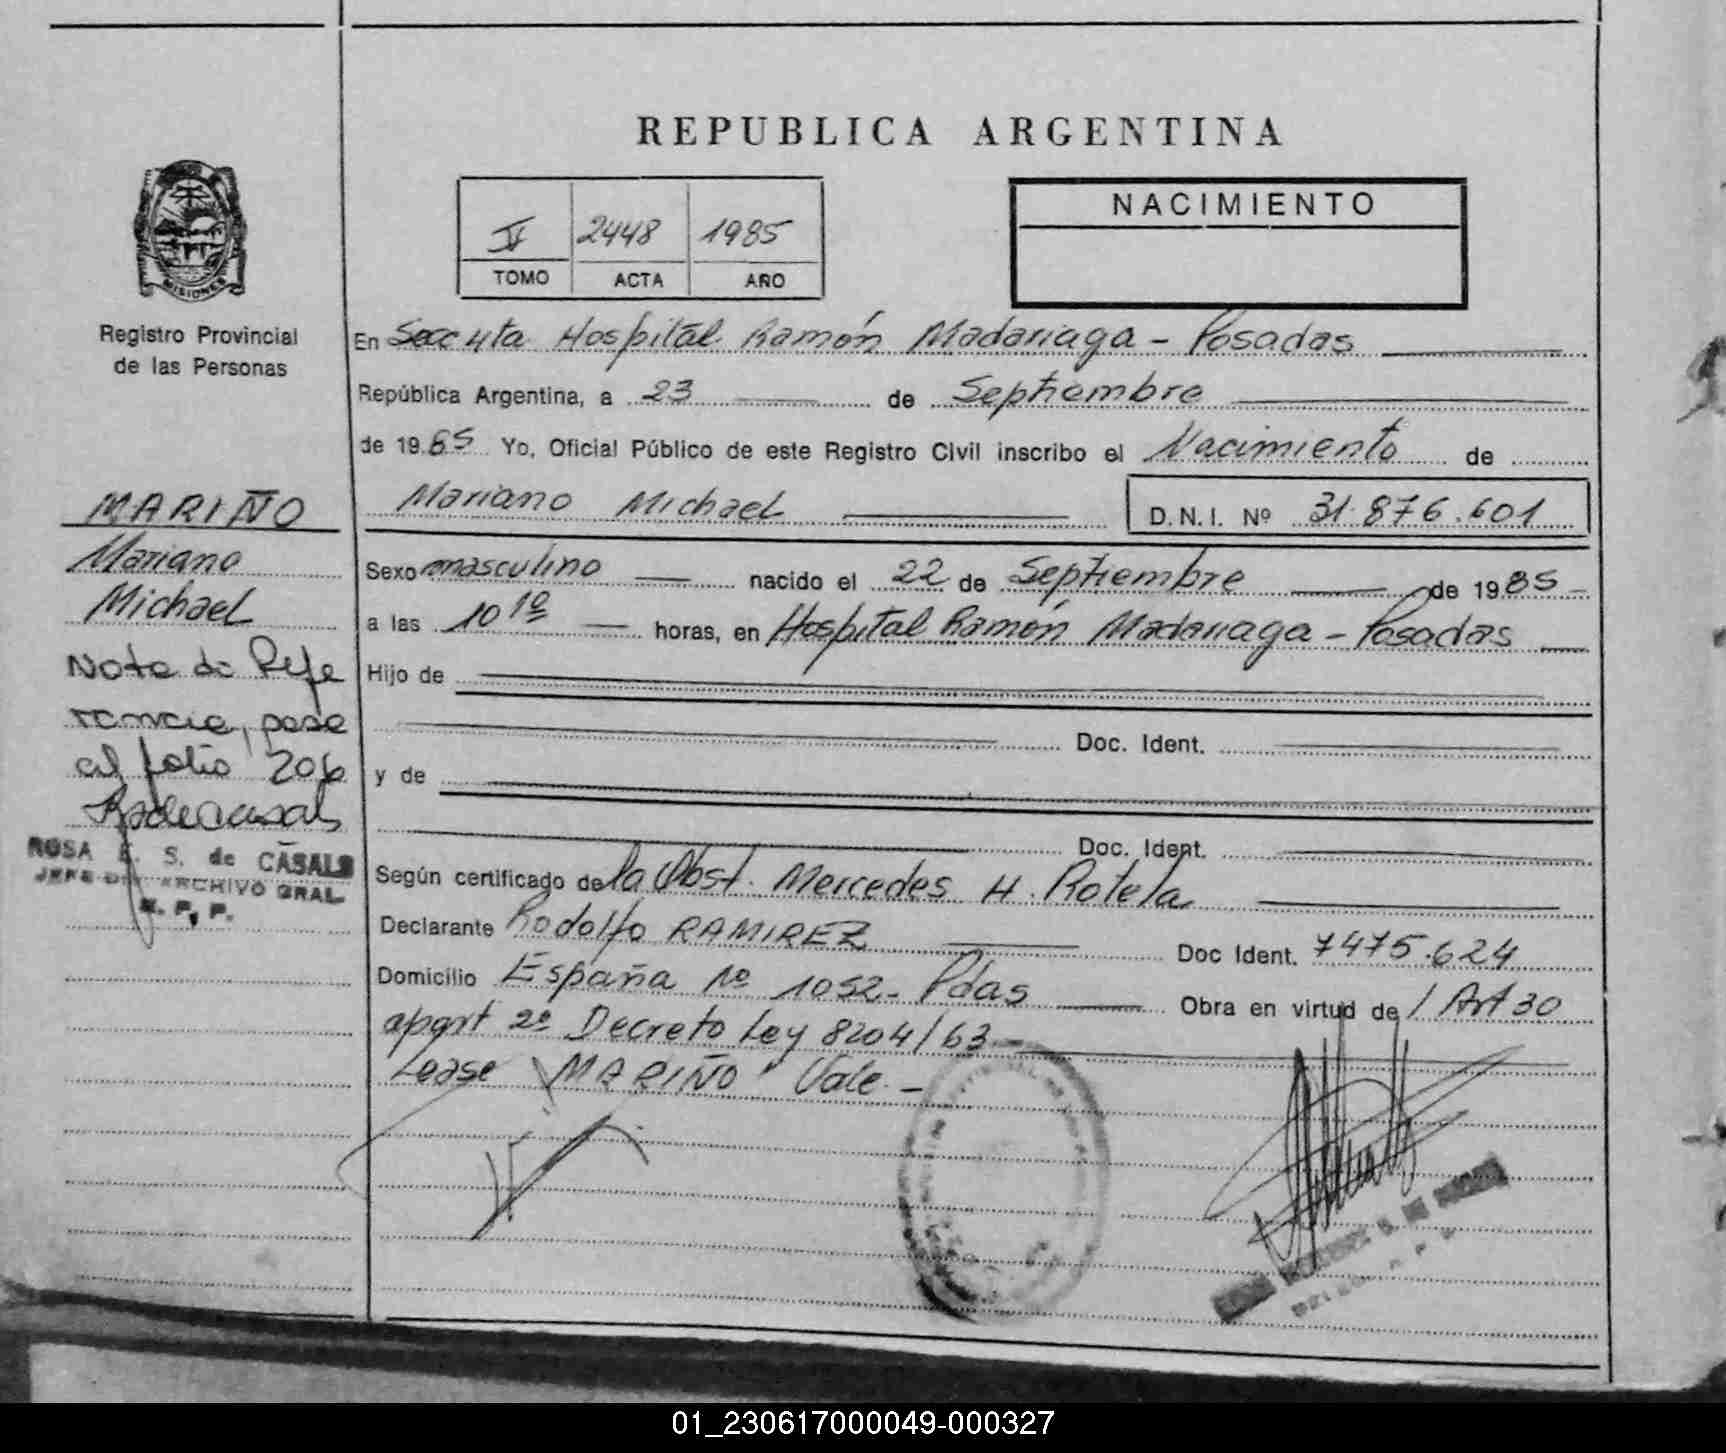 REPUBLICA ARGENTINA
TOMO
2448 ACTA
1985 AÑO
NACIMIENTO
MISIONES
Registro Provincial
de las Personas
En Secc 4ta Hospital Ramón Madariaga - Posadas
República Argentina, a 23 de Septiembre
de 1985 Yo, Oficial Público de este Registro Civil inscribo el Nacimiento de
Mariano Michael D.N.I. Nº 31.876.601
Sexo masculino nacido el 22 de Septiembre de 1985-
a las 10 10 horas, en Hospital Ramón Madariaga - Posadas
Hijo de
Doc. Ident.
y de
Doc. Ident.
Según certificado de la Obst. Mercedes H. Rotela
Declarante Rodolfo RAMIREZ Doc Ident. 7475.624
Domicilio España Nº 1052- Pdas Obra en virtud de / Art 30
apart 2º Decreto Ley 8204/63-
Lease "MARIÑO" Vale.-
MARIÑO
Mariano
Michael
Nota de Refe
rencia, pase
al folio 206
ROSA E. S. de CASALS
JEFE DEL ARCHIVO GRAL.
R. P. P.
01_230617000049-000327